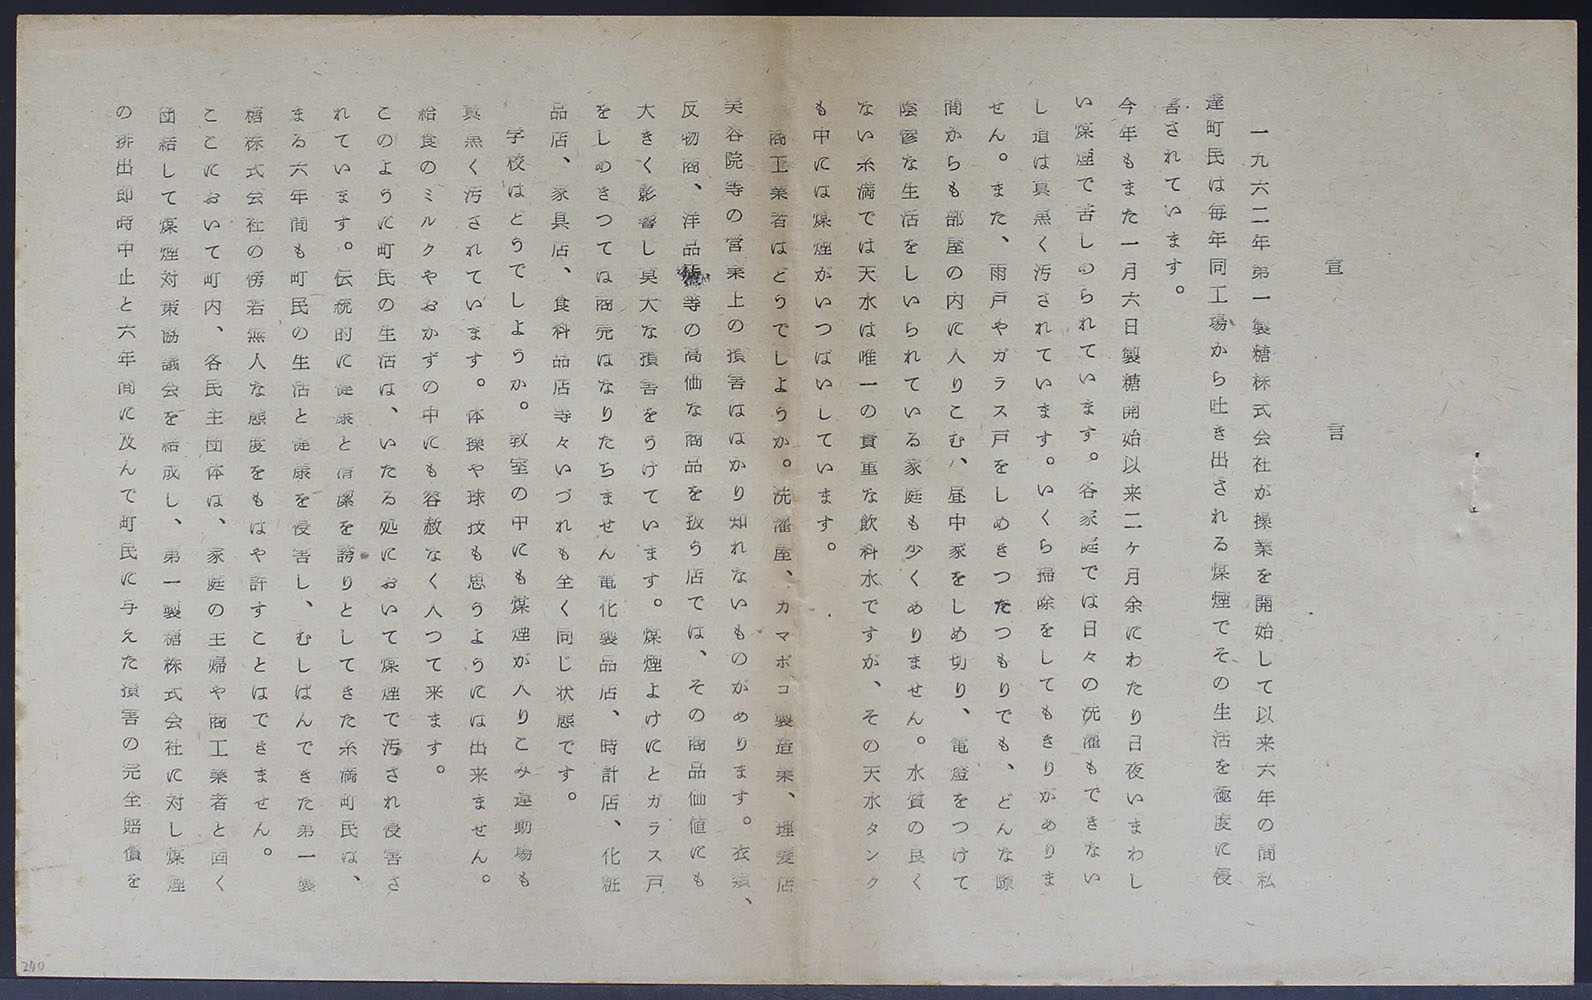 宣言
一九六二年第一製糖株式会社が操業を開始して以来六年の間私
達町民は毎年同工場から吐き出される煤煙でその生活を極度に侵
害されています。
今年もまた一月六日製糖開始以来二ヶ月余にわたり日夜いまわし
い煤煙で苦しめられています。各家庭では日々の洗濯もできない
し道は真黒く汚されています。いくら掃除をしてもきりがありま
せん。また、雨戸やガラス戸をしめきつたつもりでも、どんな隙
間からも部屋の内に入りこむ、昼中家をしめ切り、電燈をつけて
陰惨な生活をしいられている家庭も少くありません。水質の良く
ない糸満では天水は唯一の貴重な飲料水ですが、その天水タンク
も中には煤煙がいつぱいしています。
商工業者はどうでしようか。洗濯屋、カマボコ製造業、理髪店
美容院等の営業上の損害ははかり知れないものがあります。衣類、
反物商、洋品等の高価な商品を扱う店では、その商品価値にも
大きく影響し莫大な損害をうけています。煤煙よけにとガラス戸
をしめきつては商売はなりたちません電化製品店、時計店、化粧
品店、家具店、食料品店等々いづれも全く同じ状態です。
学校はどうでしようか。教室の中にも煤煙が入りこみ運動場も
真黒く汚されています。体操や球技も思うようには出来ません。
給食のミルクやおかずの中にも容赦なく入つて来ます。
このように町民の生活は、いたる処において煤煙で汚され侵害さ
れています。伝統的に健康と清潔を誇りとしてきた糸満町民は、
まる六年間も町民の生活と健康を侵害し、むしばんできた第一製
糖株式会社の傍若無人な態度をもはや許すことはできません。
ここにおいて町内、各民主団体は、家庭の主婦や商工業者と固く
団結して煤煙対策協議会を結成し、第一製糖株式会社に対し煤煙
の排出即時中止と六年間に及んで町民に与えた損害の完全賠償を
240